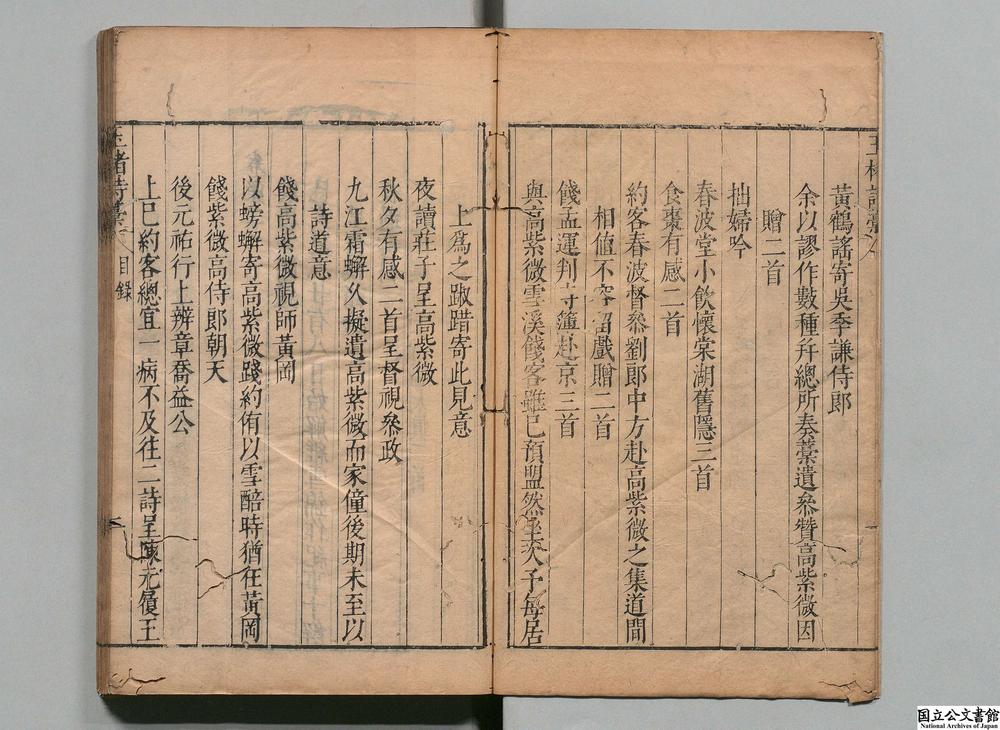 黃鶴謠寄吳季謙侍郎
余以謬作數種幷總所奏藁遺叅贊高紫微因
贈二首
拙婦吟
春波堂小飲懷棠湖舊隱三首
食棗有感二首
約客春波督叅劉郎中方赴高紫微之集道間
相值不容留戲贈二首
餞孟運判寺簿赴京三首
與高紫微雪溪餞客雖已預盟然至次予每居
上爲之踧踖寄此見意
夜讀莊子呈高紫微
秋夕有感二首呈督視叅政
九江霜蠏久擬遺高紫微而家僮後期未至以
詩道意
餞高紫微視師黃岡
以螃蠏寄高紫微踐約侑以雪醅時猶在黃岡
餞紫微高侍郎朝天
後元祐行上辨章喬益公
上巳約客總宜一病不及往二詩呈陳元履王
玉楮詩藁 目錄
国立公文書館
National Archives of Japan